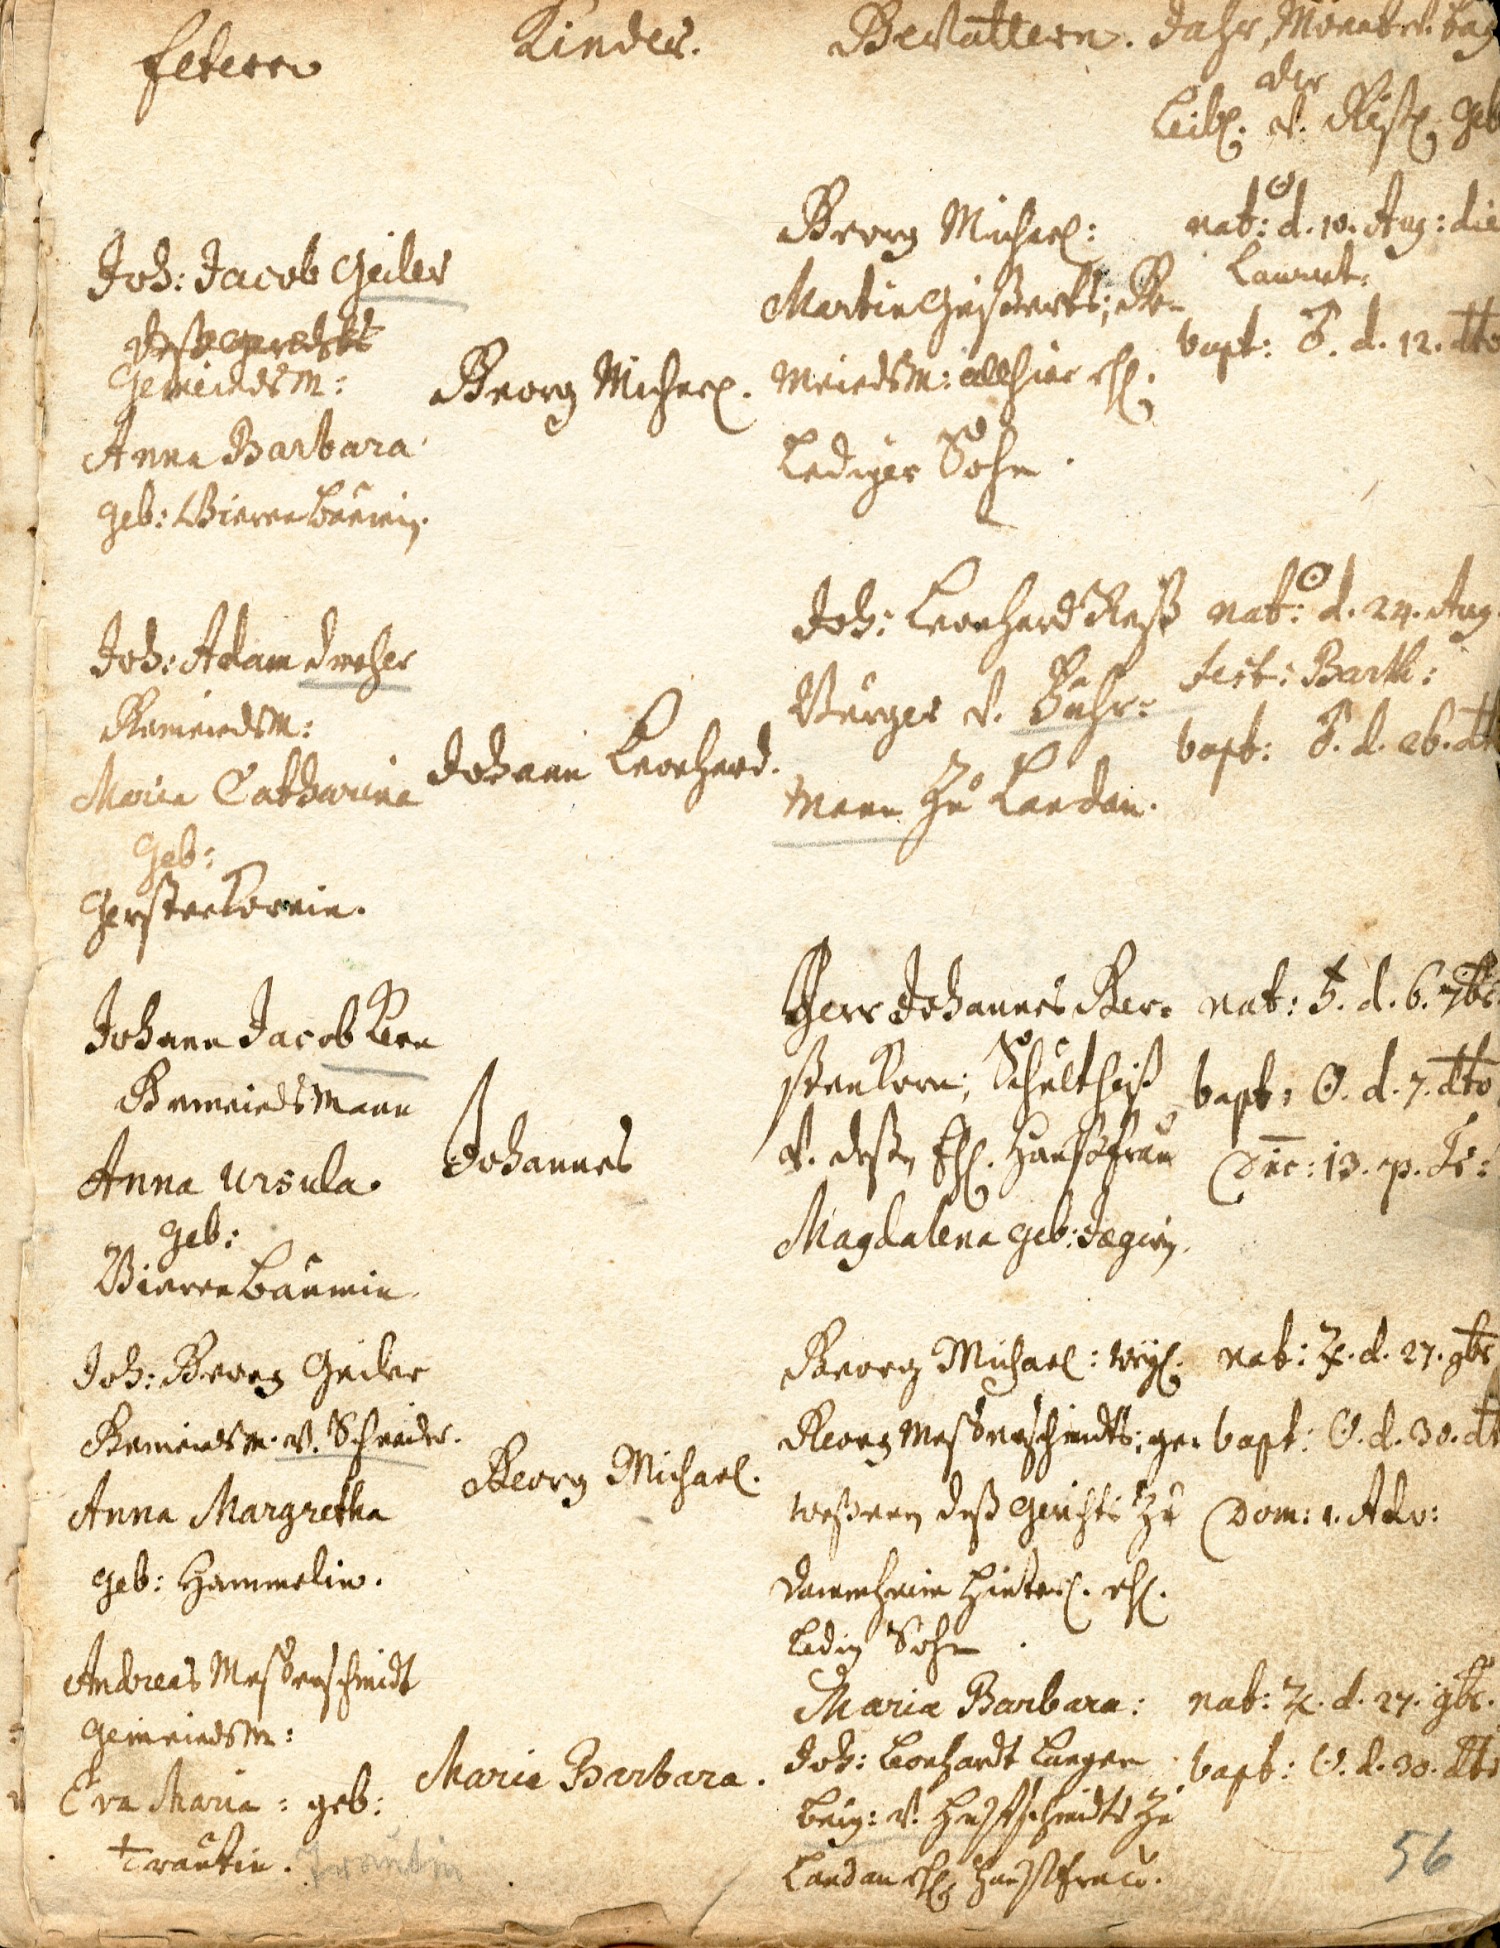 Eltern
Kinder.
Gevattern.
Jahr, Monat u. tag
der
Leibl. v. Geistl. Geb
Joh: Jacob Geiler
Gemeindsm:
Anna Barbara
geb: Bierenbäumin.
Georg Michael.
Georg Michael:
Martin Ge-
meindsm: allhier ehl.
Lediger Sohn.
nat: ☉ d. 10. Aug: die
Laurent:
bapt: ♂. d. 12. dto
Joh: Adam Dreher
Gemeindsm:
Maria Catharina
Geb:
Gerstenkornin.
Johann Leonhard.
Joh: Leonhard Reß
Bürger v. Fuhr=
mann zu Landau.
nat: ☉ d. 24. Aug.
fest: Barth:
bapt: ♂. d. 26. dto
Johann Jacob Kern
Gemeindsmann
Anna Ursula.
geb:
Bierenbäumin.
Johannes
Herr Johannes Ger=
stenkorn; Schultheiß
v. deßen Ehl. Haußfrau
Magdalena geb: Jægerin.
nat: ♄. d. 6. 7br.
bapt: ☉. d. 7. dto
Dnc: 13. p. Tr:
Joh: Georg Geiler
Gemeindsm. v. Schneider.
Anna Margretha
geb: Hammelin.
Georg Michael.
Georg Michael: weyl.
Georg Meßerschmidts; ge=
weßenen deß Gerichts zu
Dammheim hinterl. ehl.
ledig Sohn.
nat: ♃. d. 27. 9br.
bapt: ☉. d. 30. dt
Dom: 1. Adv:
Andreas Meßerschmidt
Gemeindsm:
Eva Maria: geb:
Trautin. Trautin
Maria Barbara.
Maria Barbara:
Joh: Leonhardt Langen
Burg: v. Huffschmidts zu
Landau ehl. Haußfrau.
nat: ♃. d. 27. 9br.
bapt: ☉. d. 30. dto
56